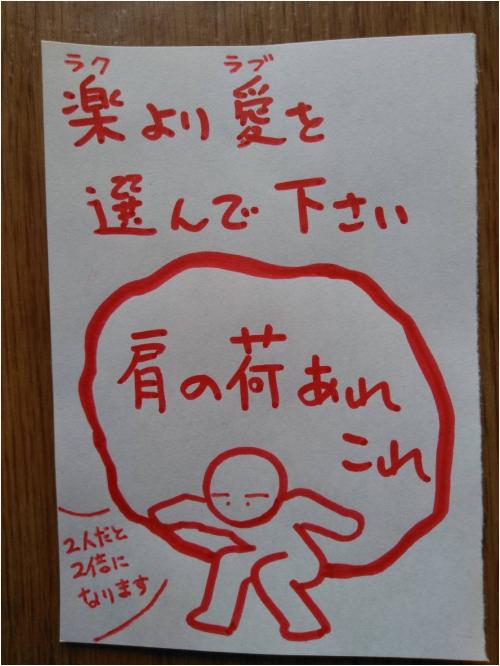 ラク ラブ
楽より愛を
選んで下さい
肩の荷あれ
これ
2人だと
2倍に
なります